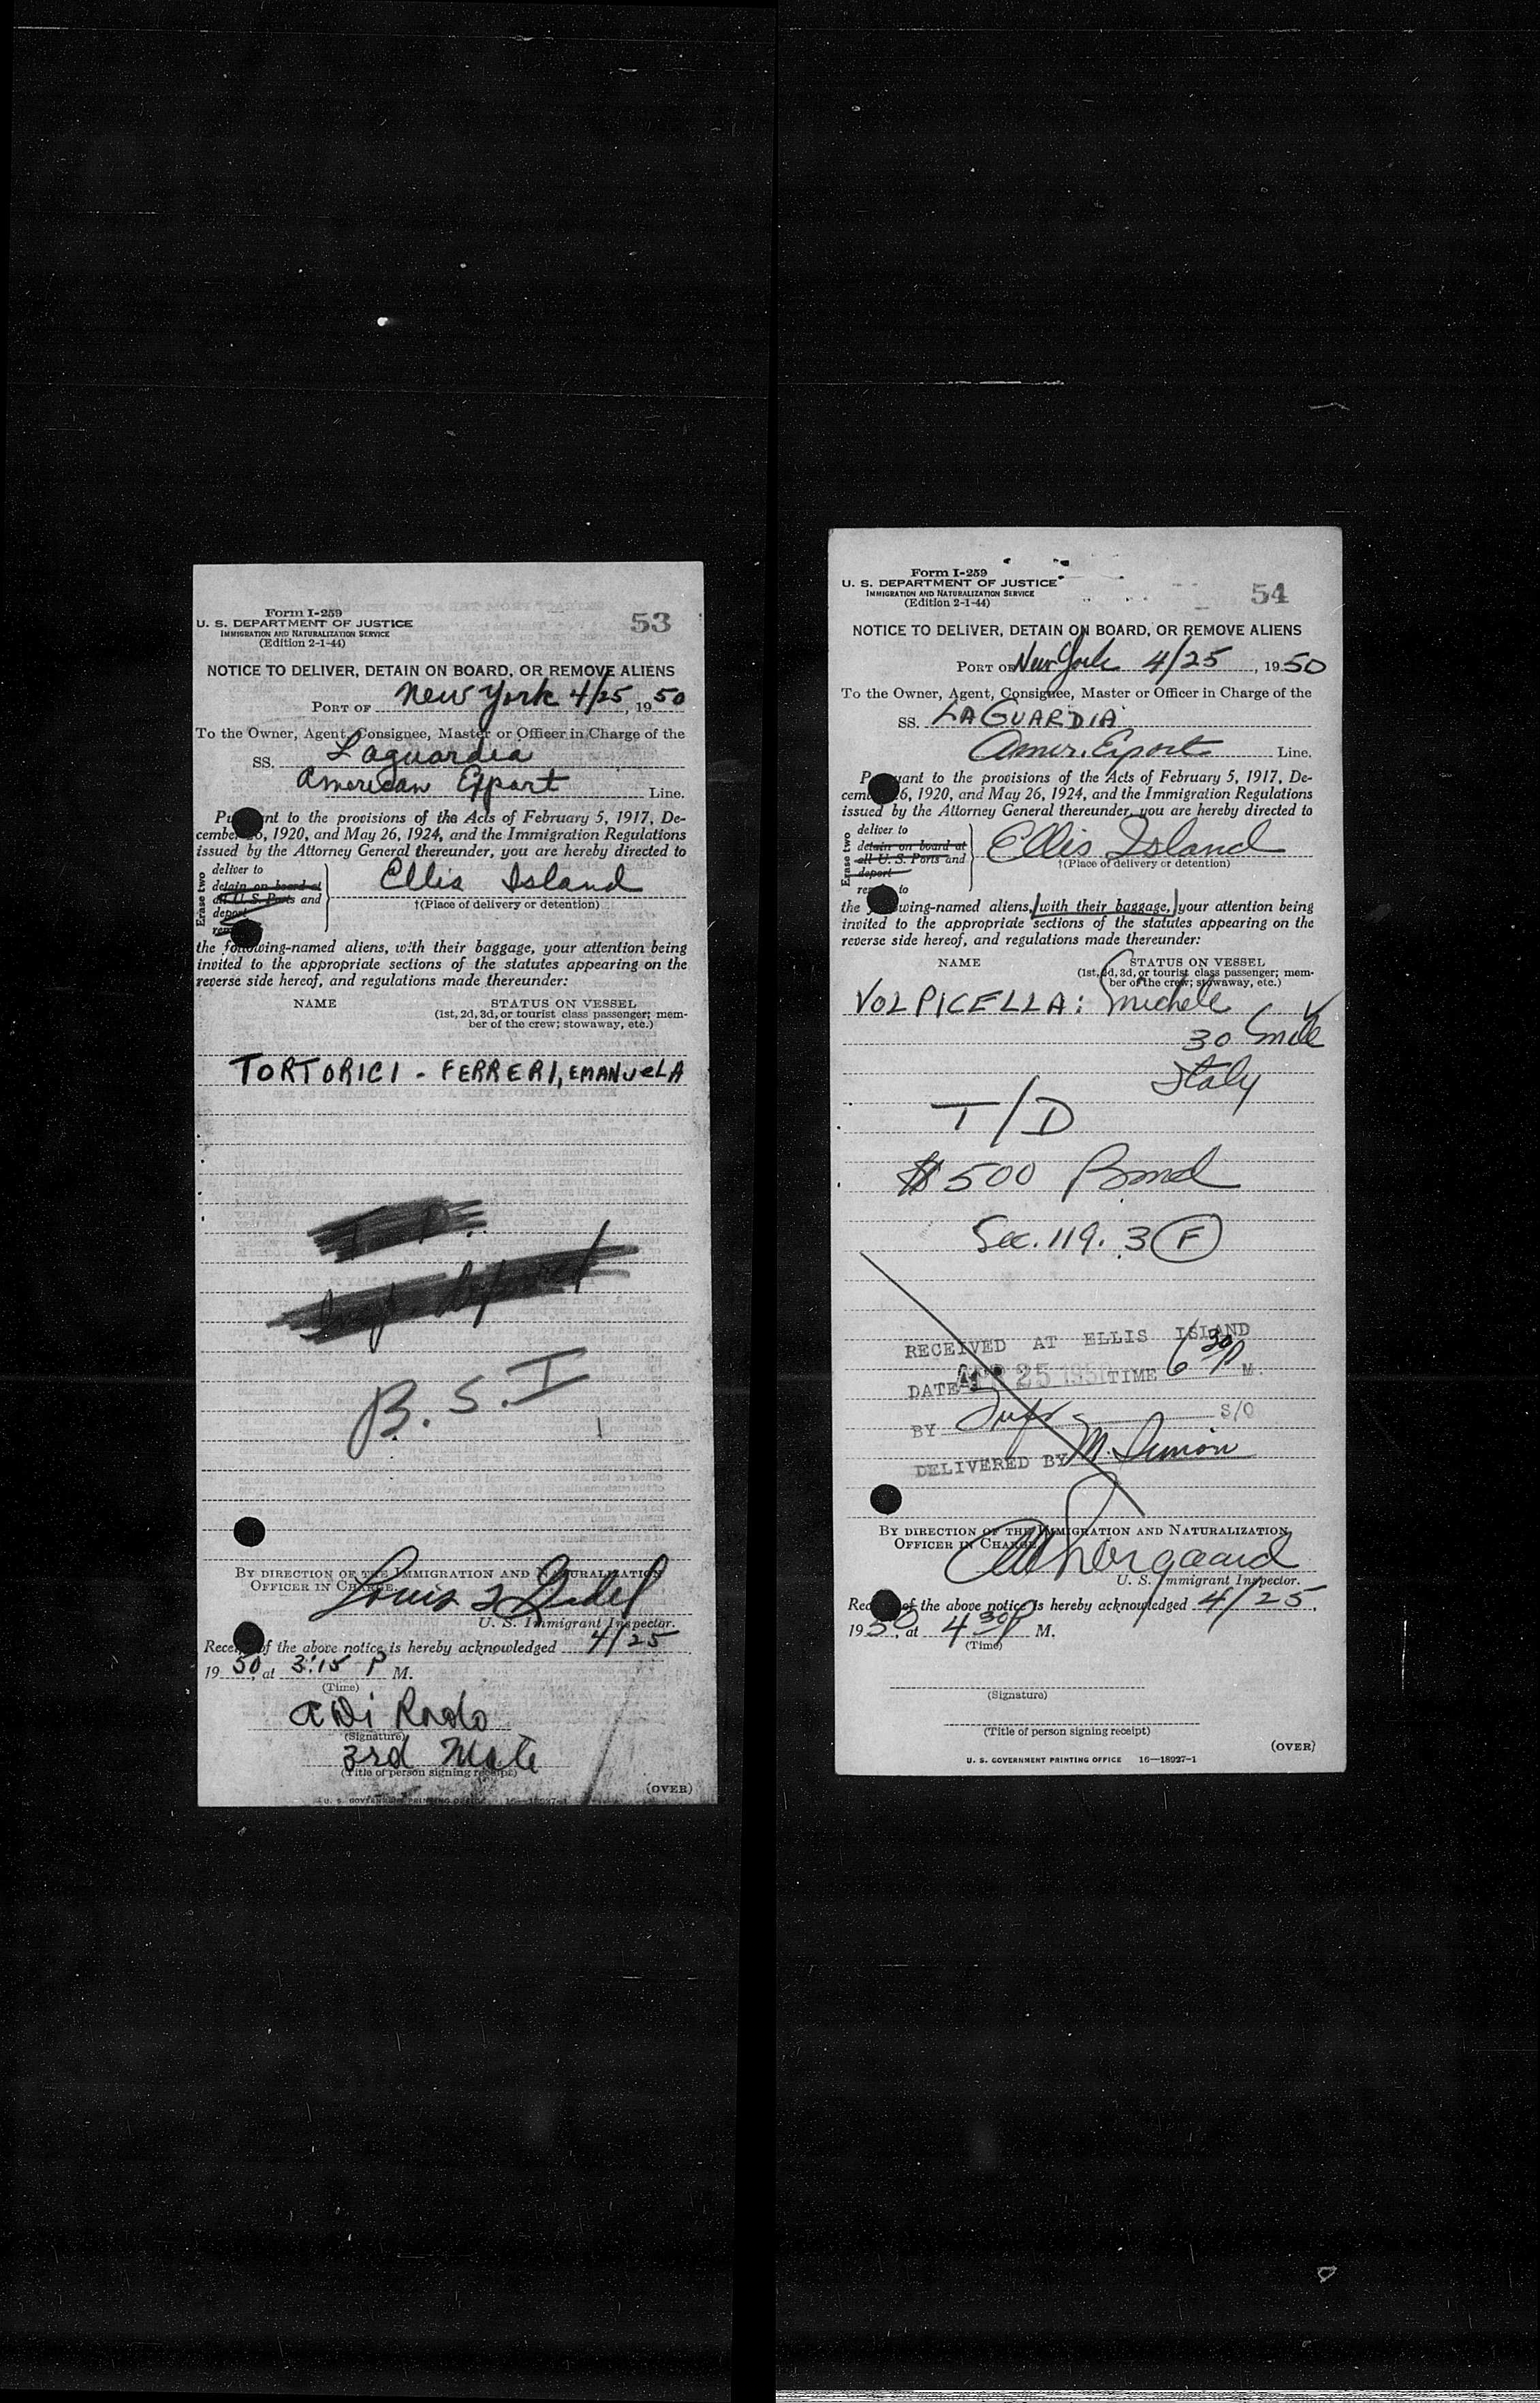 Form I-259
U. S. DEPARTMENT OF JUSTICE
IMMIGRATION AND NATURALIZATION SERVICE
(Edition 2-1-44)
53
NOTICE TO DELIVER, DETAIN ON BOARD, OR REMOVE ALIENS
PORT OF New York 4/25, 1950
To the Owner, Agent, Consignee, Master or Officer in Charge of the
SS. Laguardia
American Export Line.
Pu nt to the provisions of the Acts of February 5, 1917, De-
cember 6, 1920, and May 26, 1924, and the Immigration Regulations
issued by the Attorney General thereunder, you are hereby directed to
Erase two
deliver to
detain on board at
all U. S. Ports and
deport
Ellis Island
†(Place of delivery or detention)
the following-named aliens, with their baggage, your attention being
invited to the appropriate sections of the statutes appearing on the
reverse side hereof, and regulations made thereunder:
NAME STATUS ON VESSEL
(1st, 2d, 3d, or tourist class passenger; mem-
ber of the crew; stowaway, etc.)
TORTORICI - FERRERI, EMANUELA
B. S. I
BY DIRECTION OF THE IMMIGRATION AND NATURALIZATION
OFFICER IN CHARGE.
Louis
U. S. Immigrant Inspector.
Receipt of the above notice is hereby acknowledged 4/25
1950, at 3:15 P M.
(Time)
a Di Rado
(Signature)
3rd Mate
(Title of person signing receipt)
(OVER)
U. S. GOVERNMENT PRINTING OFFICE 16—18027-1
Form I-259
U. S. DEPARTMENT OF JUSTICE
IMMIGRATION AND NATURALIZATION SERVICE
(Edition 2-1-44)
54
NOTICE TO DELIVER, DETAIN ON BOARD, OR REMOVE ALIENS
PORT OF New York 4/25, 1950
To the Owner, Agent, Consignee, Master or Officer in Charge of the
SS. LAGUARDIA
Amer. Export Line.
P uant to the provisions of the Acts of February 5, 1917, De-
cem 6, 1920, and May 26, 1924, and the Immigration Regulations
issued by the Attorney General thereunder, you are hereby directed to
Erase two
deliver to
detain on board at
all U. S. Ports and
deport
re to
Ellis Island
†(Place of delivery or detention)
the wing-named aliens, with their baggage, your attention being
invited to the appropriate sections of the statutes appearing on the
reverse side hereof, and regulations made thereunder:
NAME STATUS ON VESSEL
(1st, 2d, 3d, or tourist class passenger; mem-
ber of the crew; stowaway, etc.)
VOLPICELLA: Michele
30 male
Italy
T/D
$500 Bond
Sec. 119. 3 F
RECEIVED AT ELLIS ISLAND
DATE APR 25 1950 TIME 6 30 P M.
BY S/O
DELIVERED BY M. Simon
BY DIRECTION OF THE IMMIGRATION AND NATURALIZATION
OFFICER IN CHARGE
U. S. Immigrant Inspector.
Rec of the above notice is hereby acknowledged 4/25,
1950, at 4 30 P M.
(Time)
(Signature)
(Title of person signing receipt)
(OVER)
U. S. GOVERNMENT PRINTING OFFICE 16—18027-1